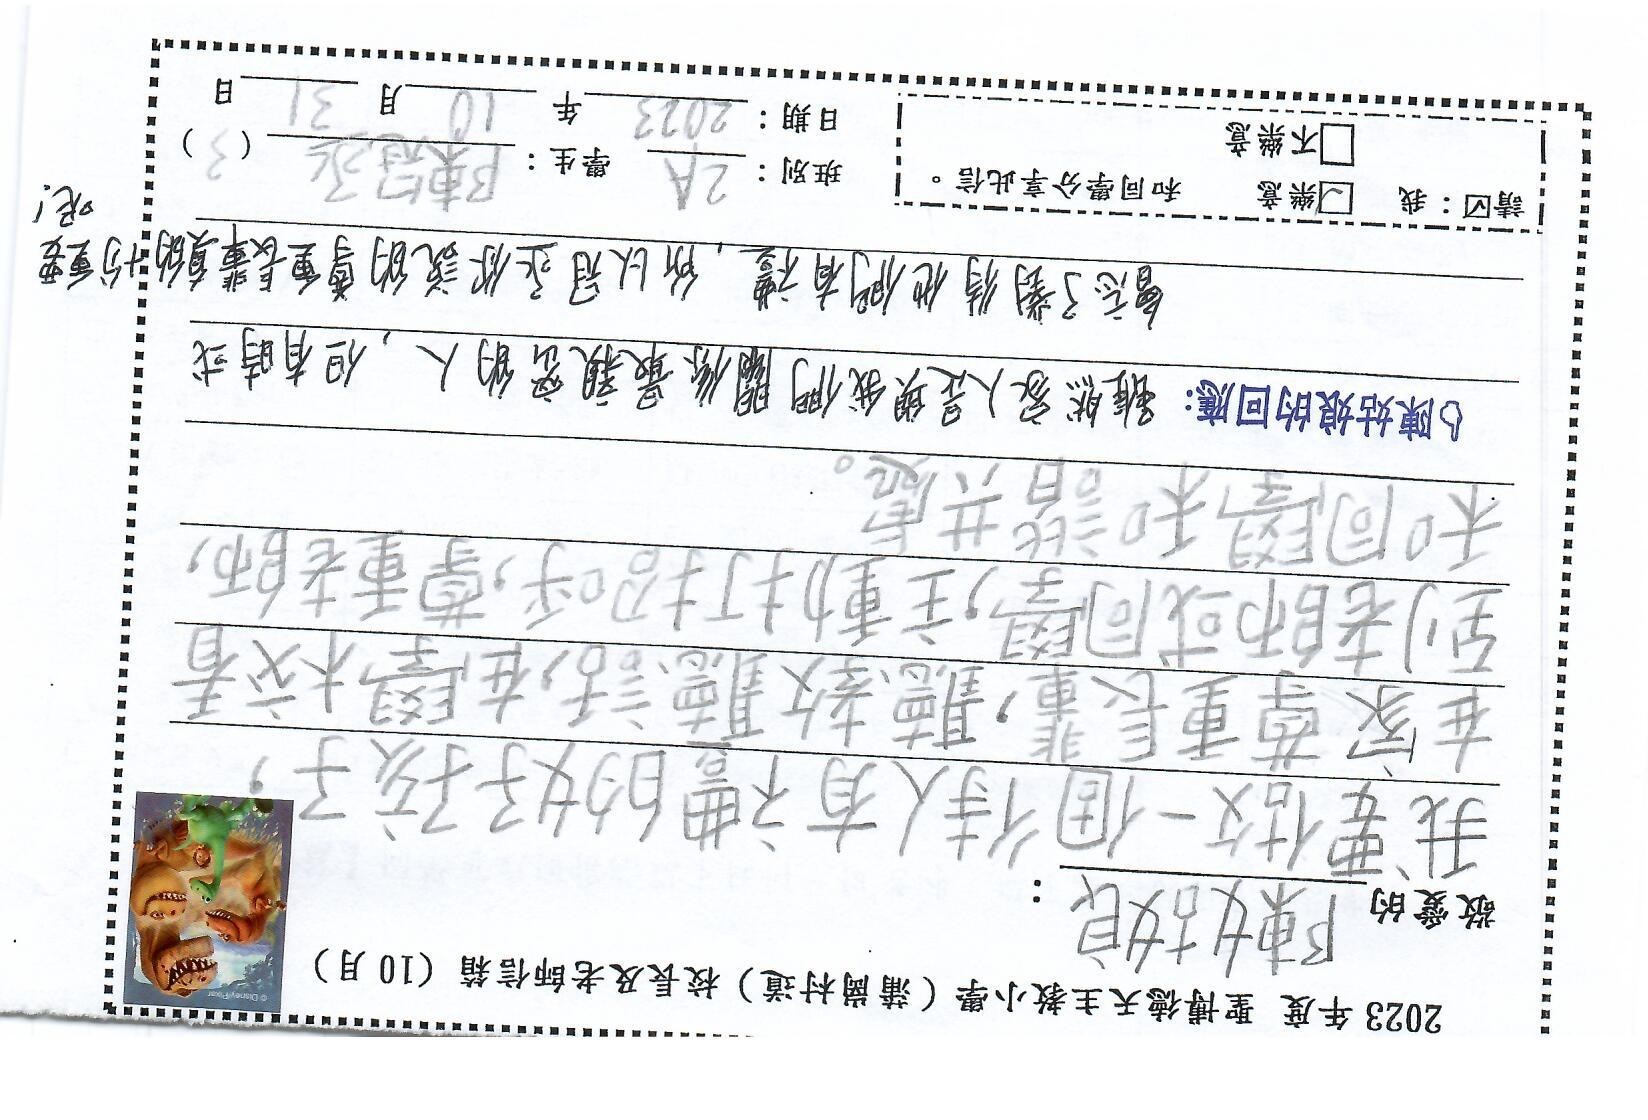 2023 年度 聖博德天主教小學（蒲崗村道）校長及老師信箱（10 月）
©Disney/Pixar
敬愛的 陳姑娘：
我要做一個待人有禮的好孩子，
在家尊重長輩，聽教聽話，在學校看
到老師或同學，主動打招呼，尊重老師，
和同學和諧共處。
陳姑娘的回應：雖然家人是與我們關係最親密的人，但有時或
會忘了對待他們有禮，所以冠丞你說的尊重長輩真的十分重要
呢！
請☑：我 ☑樂意 和同學分享此信。
□不樂意
班別：2A 學生：陳冠丞（3）
日期：2023 年 10 月 31 日